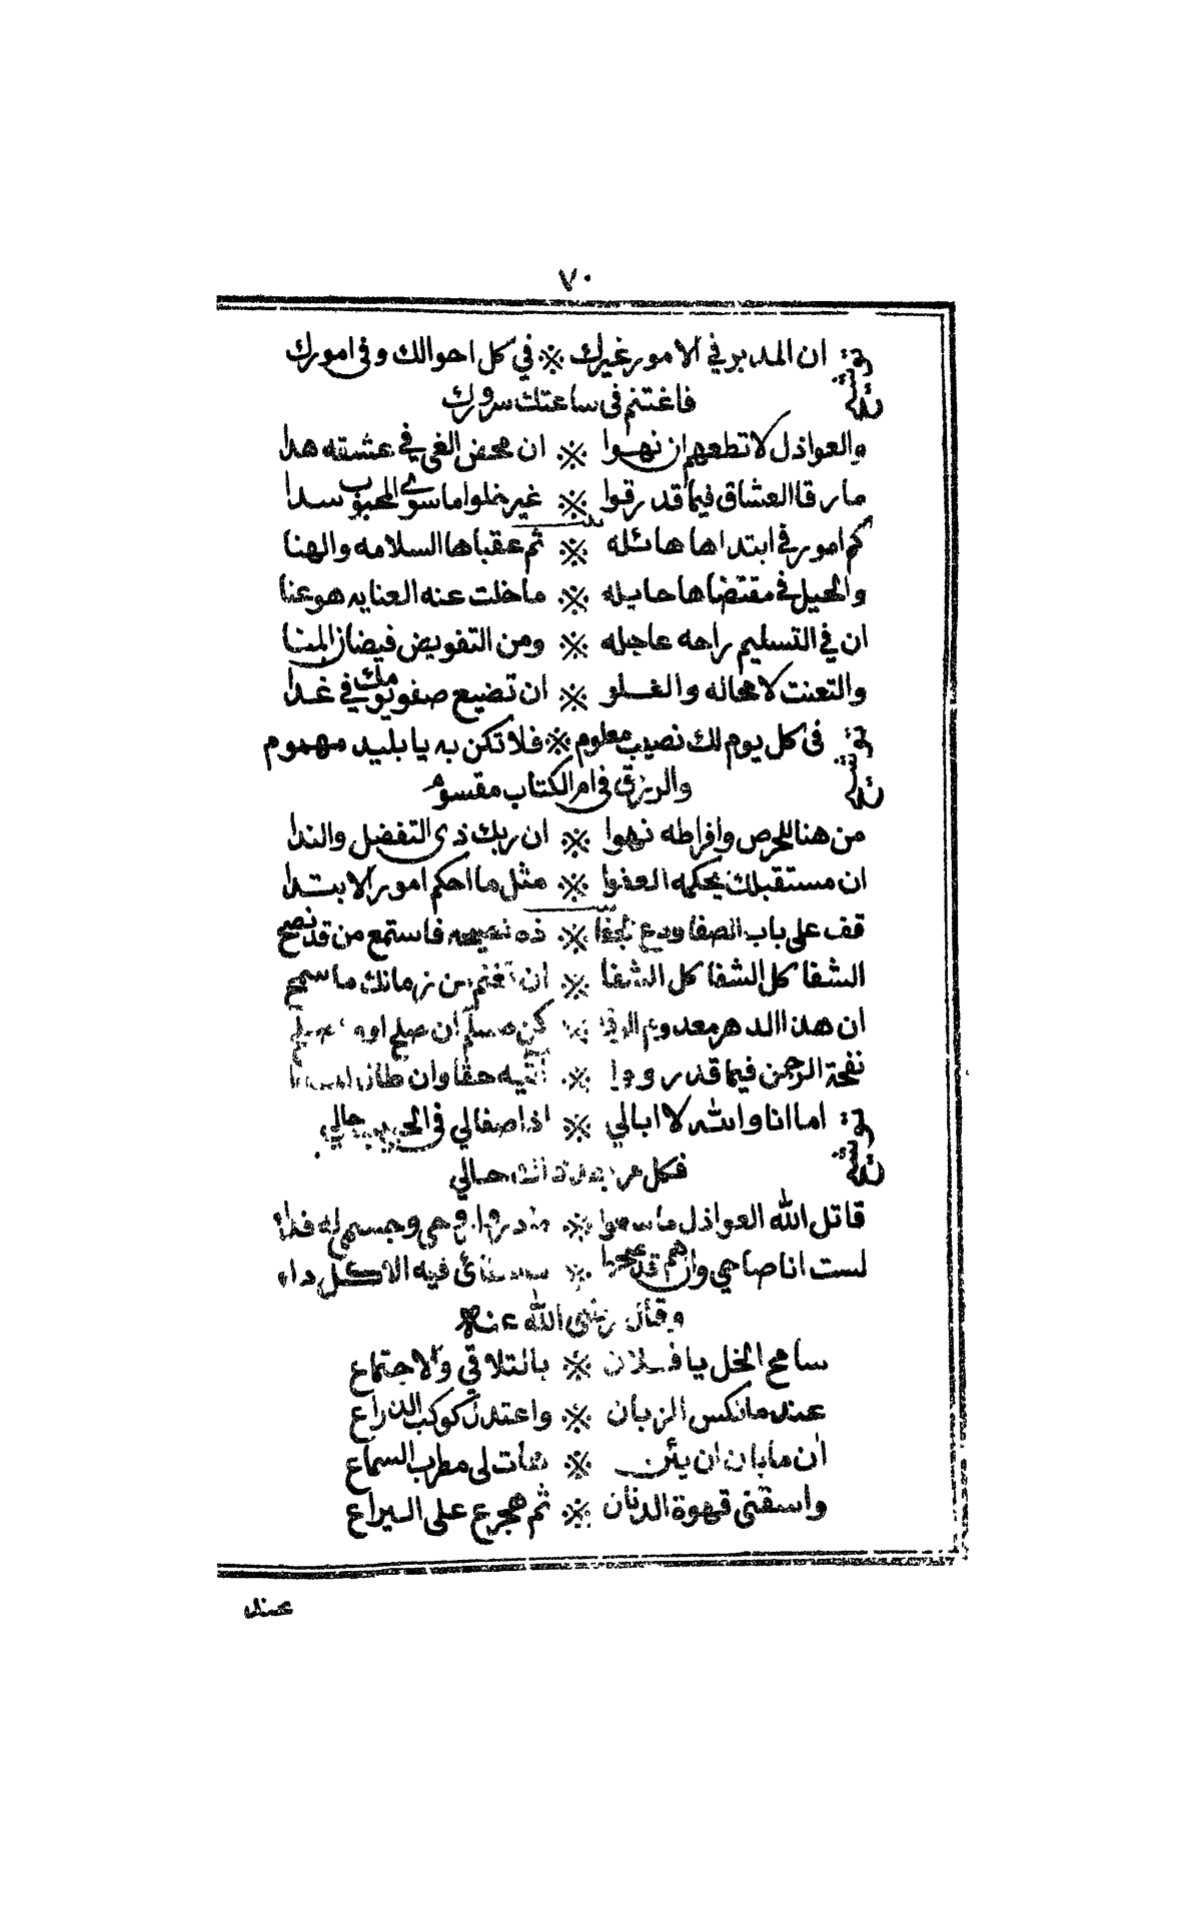 ٧٠
ان المدبر في الامور غيرك ※ في كل احوالك وفى امورك
توشيح
فاغتنم فى ساعتك سرورك
والعواذل لا تطعهم ان نهوا ※ ان محض الغي في عشقه هدا
ما رقا العشاق فيما قد رقوا ※ غير خلوا ما سوى المحبوب سدا
كم امور في ابتداها هائله ※ ثم عقباها السلامه والهنا
والحيل في مقتضاها حايله ※ ما خلت عنه العنايه هو عنا
ان في التسليم راحه عاجله ※ ومن التفويض فيضاز المنا
والتعنت لا محاله والغلو ※ ان تضيع صفو يومك في غدا
فى كل يوم لك نصيب معلوم ※ فلا تكن به يا بليد مهموم
توشيح
والرزق فى ام الكتاب مقسوم
من هنا للحرص وافراطه نهوا ※ ان ربك ذى التفضل والندا
ان مستقبلك يحكمه العفوا ※ مثل ما احكم امور الابتدا
قف على باب الصفا ودع الجفا ※ ذه نصيحه فاستمع من قد نصح
الشفا كل الشفا كل الشفا ※ ان تغنم من زمانك ما سمح
ان هذا الدهر معدوم الوفا ※ كن مسلم ان صلح او
نفحة الرحمن فيما قدر ※ حقا وان طال
اما انا والله لا ابالي ※ اذا صفا لي فى الحبيب حالي
توشيح
فكل حالي
قاتل الله العواذل ما سعوا ※ روحي وجسمي له فدا
لست انا صاحي وان هم قد صحوا ※ فيه الاكل داء
وقال رضى الله عنه
سامح الخل يا فلان ※ بالتلاقي والاجتماع
عند ما نكس الزبان ※ واعتدل كوكب الذراع
ان ما بان ان يئن ※ هات لى مطرب السماع
واسقنى قهوة الدنان ※ ثم هجرع على اليراع
عند